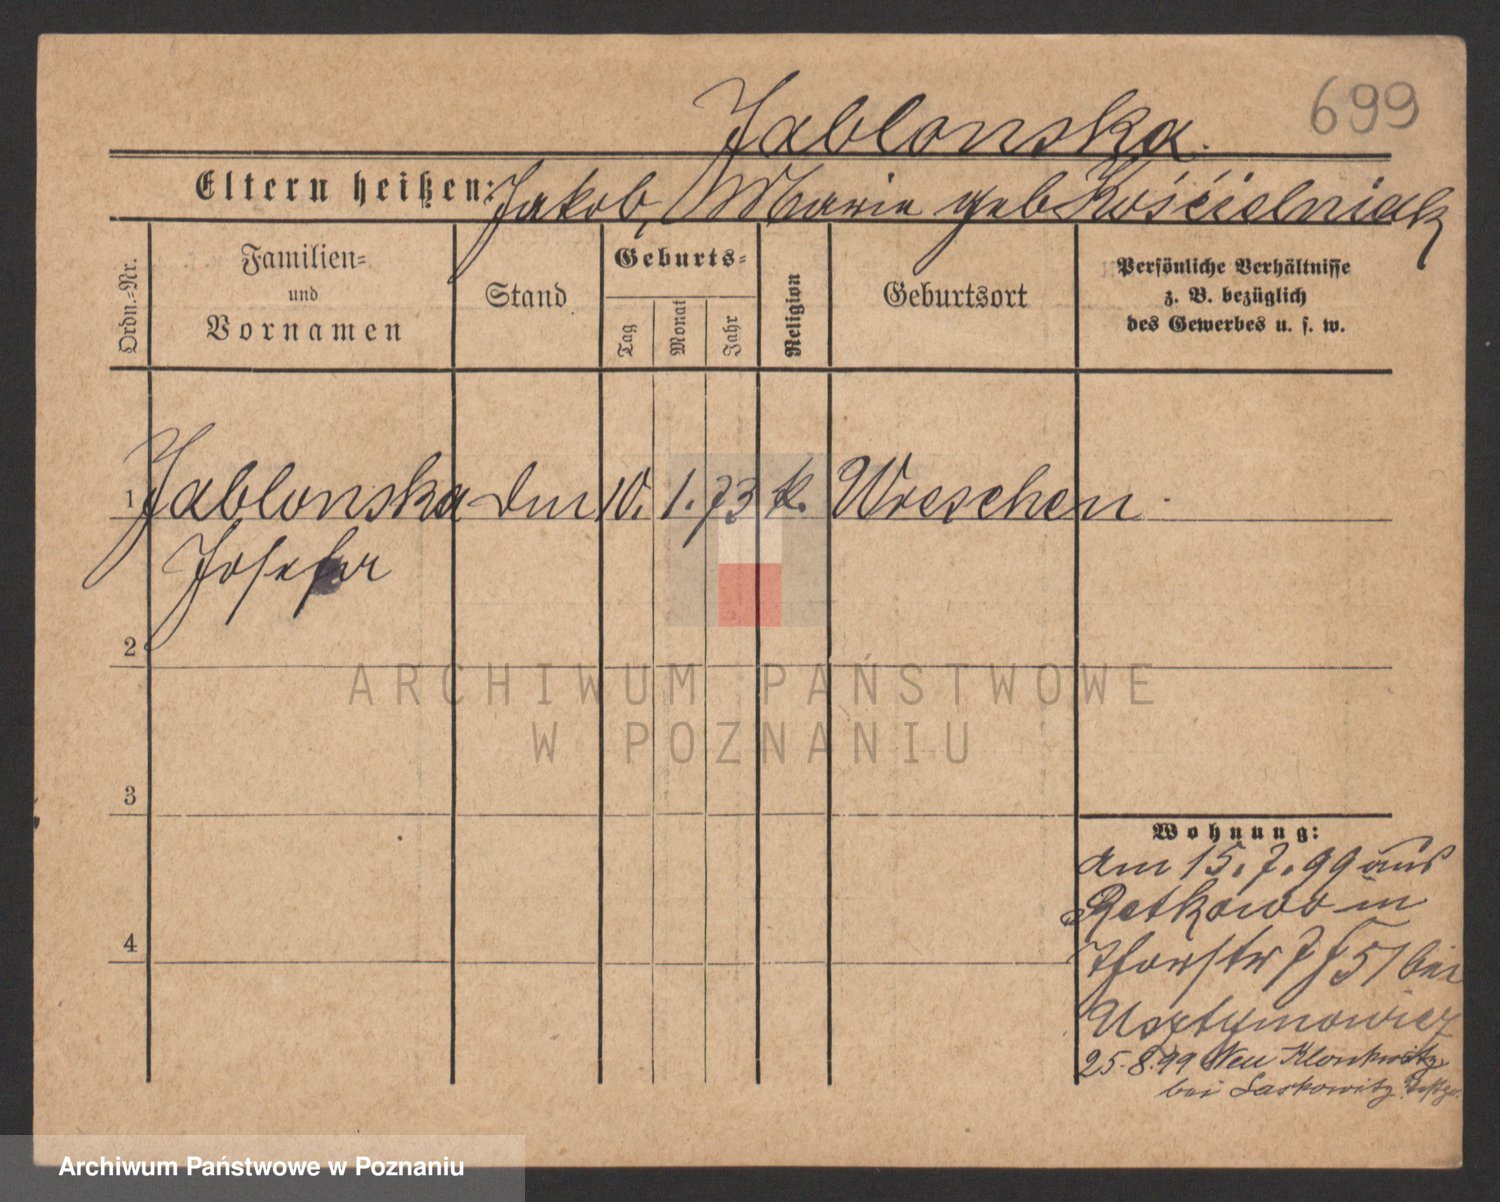 699
Jablonska.
Eltern heißen: Jakob, Marie geb Kościelniak
Ordn.-Nr.
Familien-
und
Vornamen
Stand
Geburts-
Tag
Monat
Jahr
Religion
Geburtsort
Persönliche Verhältnisse
z. B. bezüglich
des Gewerbes u. s. w.
1 Jablonska 10. 1. 73 k. Wreschen
Josefa
2
3
4
Wohnung:
am 15. 7. 99 aus
Ratkowo in
51 bei
Usztymowicz
25. 8. 99 Neu
bei Laskowitz
ARCHIWUM PAŃSTWOWE
W POZNANIU
Archiwum Państwowe w Poznaniu